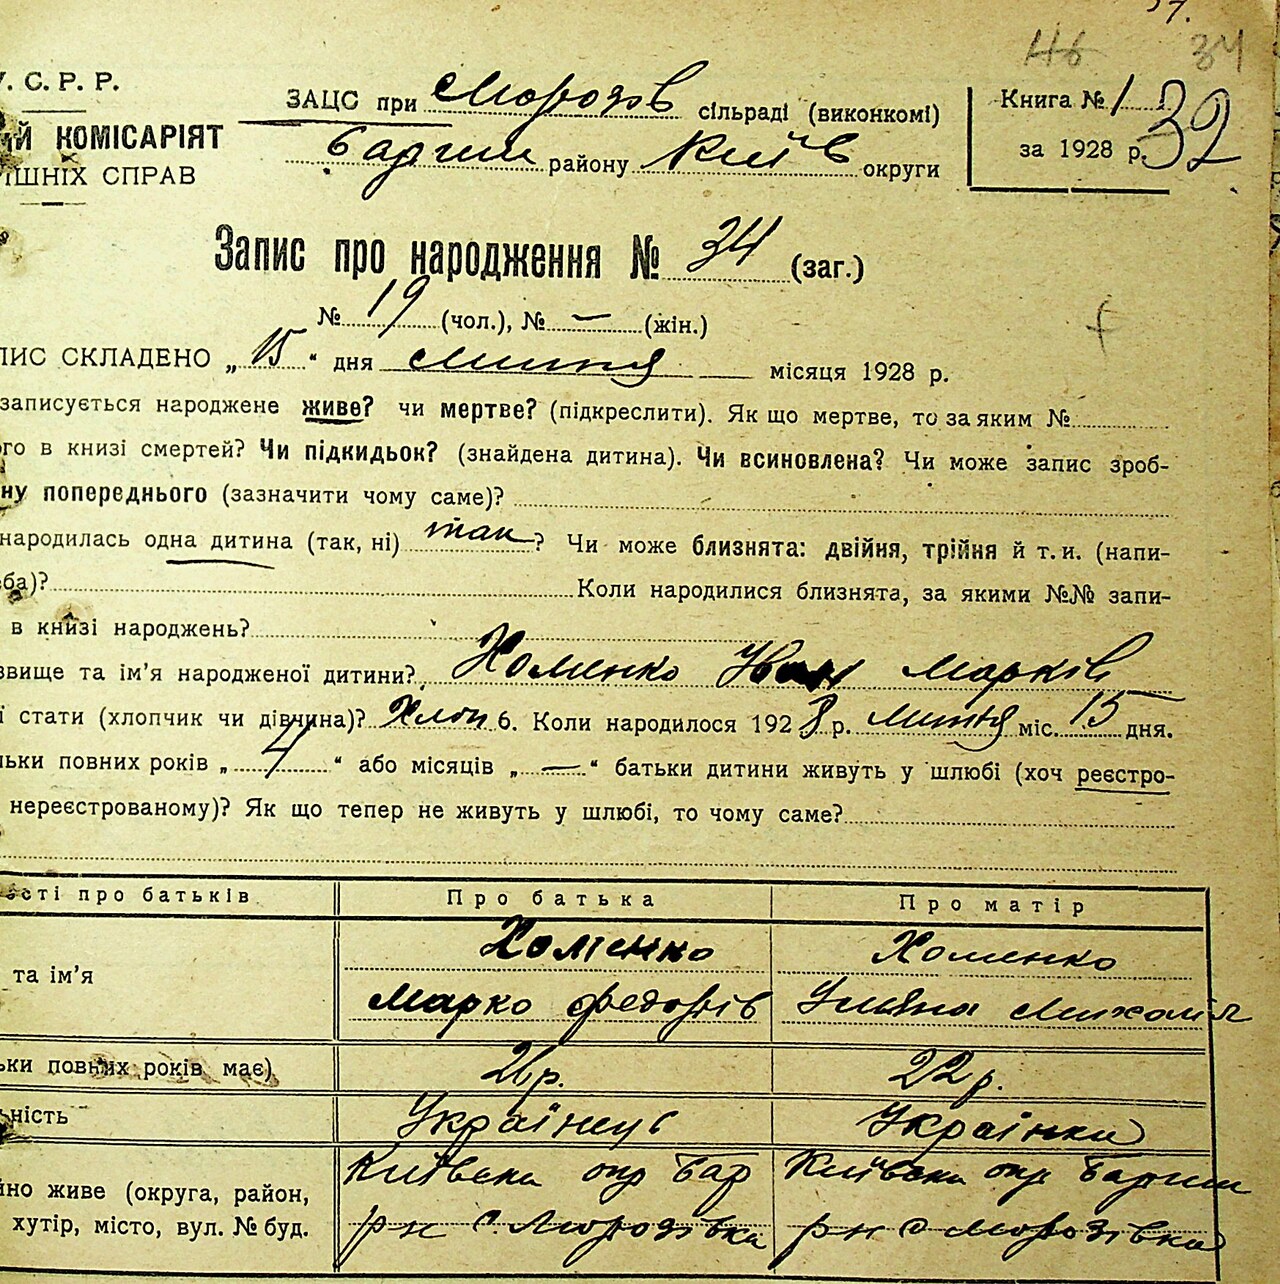 34
У. С. Р. Р.
ЗАЦС при Морозов сільраді (виконкомі)
Книга № 1
32
ий КОМІСАРІЯТ
Баришо району Київ округи
за 1928 р.
ішніх СПРАВ
Запис про народження № 34 (заг.)
№ 19 (чол.), № — (жін.)
пис складено „ 15 “ дня липня місяця 1928 р.
записується народжене живе? чи мертве? (підкреслити). Як що мертве, то за яким №
ого в книзі смертей? Чи підкидьок? (знайдена дитина). Чи всиновлена? Чи може запис зроб-
ну попереднього (зазначити чому саме)?
народилась одна дитина (так, ні) так ? Чи може близнята: двійня, трійня й т. и. (напи-
еба)? Коли народилися близнята, за якими №№ запи-
в книзі народжень?
звище та ім’я народженої дитини? Хоменко Иван Марків
ї стати (хлопчик чи дівчина)? Хлоп 6. Коли народилося 1928 р. липня міс. 15 дня.
льки повних років „ 4 “ або місяців „ — “ батьки дитини живуть у шлюбі (хоч реєстро-
нереєстрованому)? Як що тепер не живуть у шлюбі, то чому саме?
ості про батьків Про батька Про матір
та ім’я
Хоменко Хоменко
Марко Федорів Уляна Михайл
ьки повних років має) 26 р. 22 р.
ьність Українець Українка
йно живе (округа, район, хутір, місто, вул. № буд.
Київська окр Бар Київська окр Бариш
рн с Морозівка рн с Морозівка